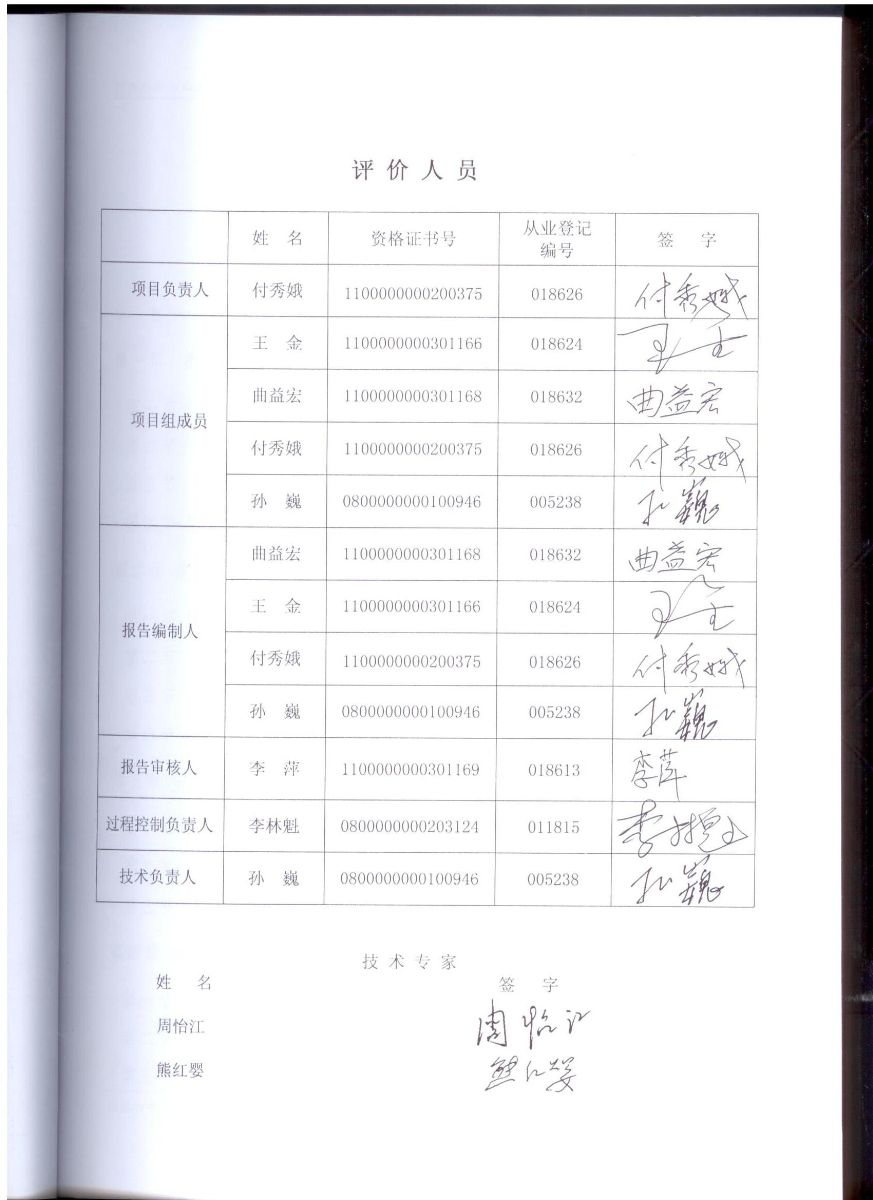 评价人员
姓 名 资格证书号 从业登记编号 签 字
项目负责人 付秀娥 1100000000200375 018626 付秀娥
项目组成员 王 金 1100000000301166 018624 王金
曲益宏 1100000000301168 018632 曲益宏
付秀娥 1100000000200375 018626 付秀娥
孙 巍 0800000000100946 005238 孙巍
报告编制人 曲益宏 1100000000301168 018632 曲益宏
王 金 1100000000301166 018624 王金
付秀娥 1100000000200375 018626 付秀娥
孙 巍 0800000000100946 005238 孙巍
报告审核人 李 萍 1100000000301169 018613 李萍
过程控制负责人 李林魁 0800000000203124 011815 李林魁
技术负责人 孙 巍 0800000000100946 005238 孙巍
技术专家
姓 名 签 字
周怡江 周怡江
熊红婴 熊红婴